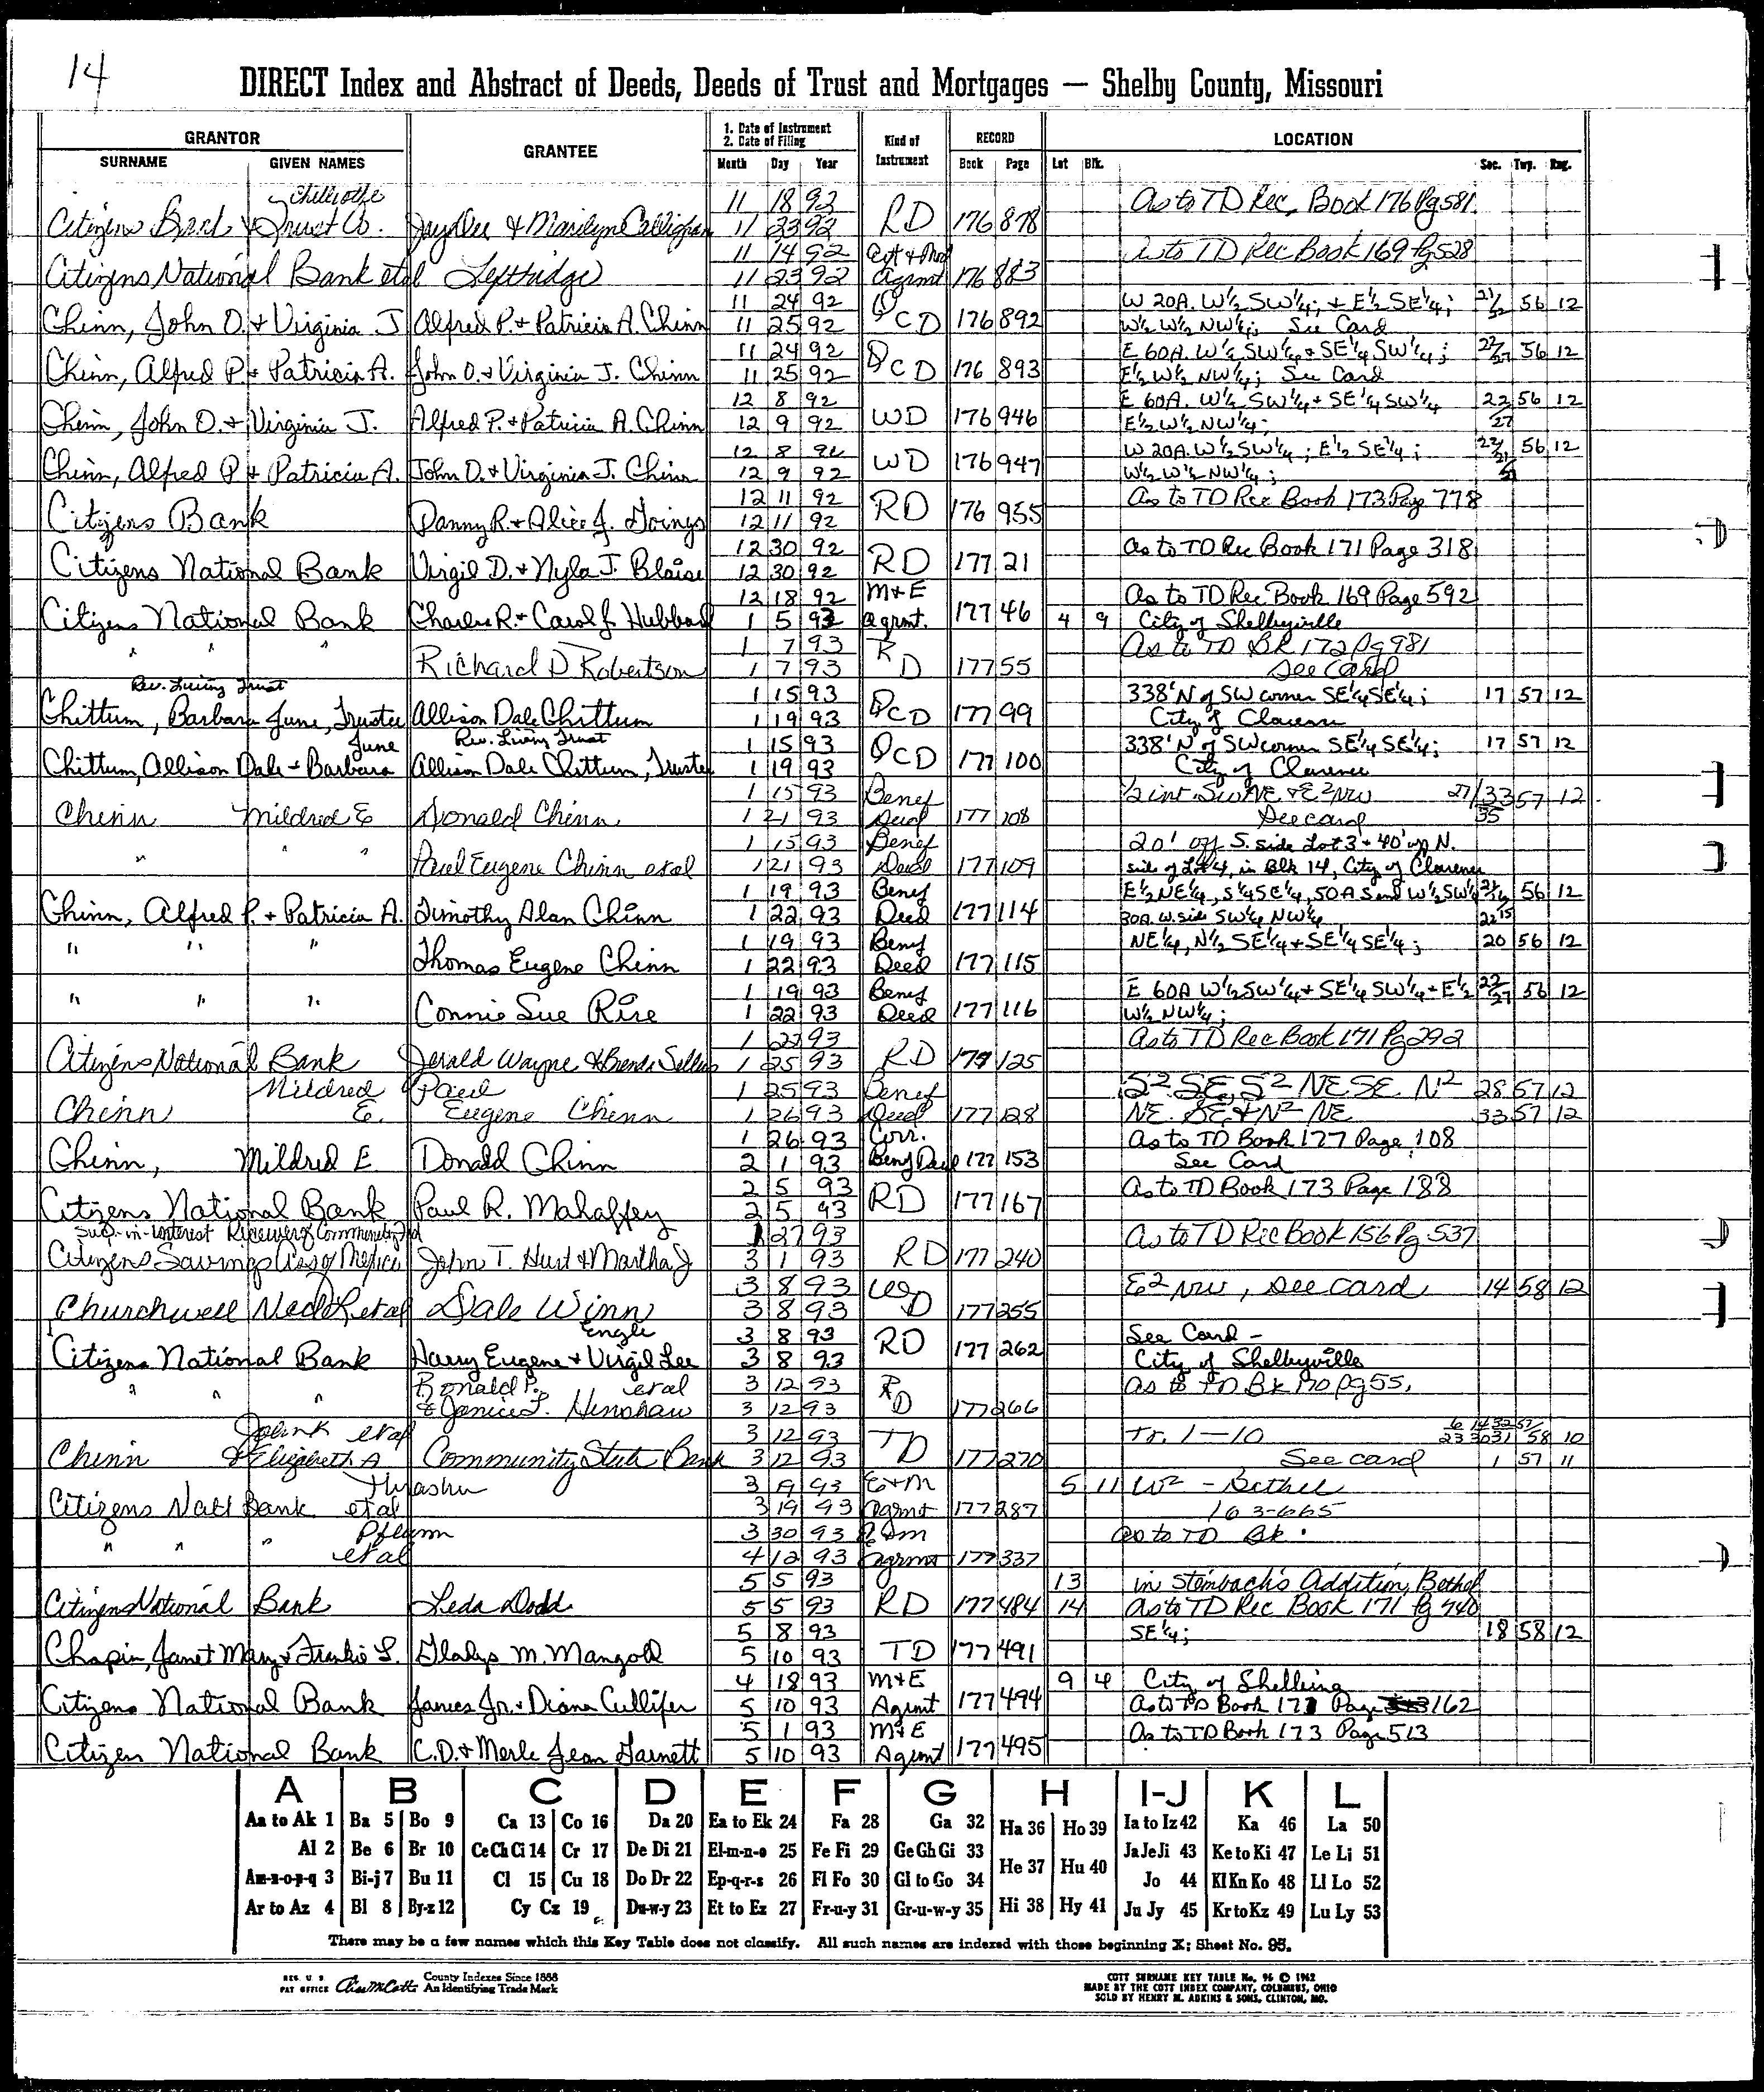 14
DIRECT Index and Abstract of Deeds, Deeds of Trust and Mortgages — Shelby County, Missouri
GRANTOR GRANTEE 1. Date of Instrument 2. Date of Filing Kind of Instrument RECORD LOCATION
SURNAME GIVEN NAMES Month Day Year Book Page Lot Blk. Sec. Twp. Rng.
Chillicothe 11 18 92 As to TD Rec. Book 176 Pg 581
Citizens Bank & Trust Co. & Marilyn 11 23 92 RD 176 878
11 14 92 As to TD Rec Book 169 Pg 528
Citizens National Bank etal Leftridge 11 23 92 Agrmt 176 883
11 24 92 W 20A. W½ SW¼; + E½ SE¼; 56 12
Chinn, John O. + Virginia J Alfred P. + Patricia A. Chinn 11 25 92 QCD 176 892 W½ W½ NW¼; See Card
11 24 92 E 60A. W½ SW¼ + SE¼ SW¼; 22/27 56 12
Chinn, Alfred P. + Patricia A. John O. + Virginia J. Chinn 11 25 92 QCD 176 893 E½ W½ NW¼; See Card
12 8 92 E 60A. W½ SW¼ + SE¼ SW¼ 22 56 12
Chinn, John O. + Virginia J. Alfred P. + Patricia A. Chinn 12 9 92 WD 176 946 E½ W½ NW¼; 27
12 8 92 W 20A. W½ SW¼; E½ SE¼; 56 12
Chinn, Alfred P + Patricia A. John O. + Virginia J. Chinn 12 9 92 WD 176 947 W½ W½ NW¼;
12 11 92 As to TD Rec Book 173 Page 778
Citizens Bank Danny R. + Alice J. Goings 12 11 92 RD 176 955
12 30 92 As to TD Rec Book 171 Page 318
Citizens National Bank Virgil D. + Nyla J. Blaise 12 30 92 RD 177 21
12 18 92 M+E As to TD Rec Book 169 Page 592
Citizens National Bank Charles R. + Carol J. Hubbard 1 5 93 Agrmt. 177 46 4 9 City of Shelbyville
" " " 1 7 93 As to TD BK 172 Pg 981
Richard D Robertson 1 7 93 RD 177 55 See Card
Rev. Living Trust 1 15 93 338' N of SW corner SE¼ SE¼; 17 57 12
Chittum, Barbara June, Trustee Allison Dale Chittum 1 19 93 QCD 177 99 City of Clarence
June Rev. Living Trust 1 15 93 338' N of SW corner SE¼ SE¼; 17 57 12
Chittum, Allison Dale + Barbara Allison Dale Chittum, Trustee 1 19 93 QCD 177 100 City of Clarence
1 15 93 Benef ½ int. SW NE & E2 NW 27/33 57 12
Chinn Mildred E Donald Chinn 1 21 93 Deed 177 108 See card 35
" " " 1 15 93 Benef 20' off S. side Lot 3 + 40' off N.
Paul Eugene Chinn etal 1 21 93 Deed 177 109 side of Lot 4, in Blk 14, City of Clarence
1 19 93 Benef E½ NE¼, S¼ SE¼, 50 A S end W½ SW¼ 56 12
Chinn, Alfred P. + Patricia A. Timothy Alan Chinn 1 22 93 Deed 177 114 30A. W. side SW¼ NW¼ 22 15
" " " 1 19 93 Benef NE¼, N½ SE¼ + SE¼ SE¼; 20 56 12
Thomas Eugene Chinn 1 22 93 Deed 177 115
" " " 1 19 93 Benef E 60A W½ SW¼ + SE¼ SW¼ + E½ 22/27 56 12
Connie Sue Rise 1 22 93 Deed 177 116 W½ NW¼;
1 22 93 As to TD Rec Book 171 Pg 292
Citizens National Bank Jerald Wayne & Brenda Sellers 1 25 93 RD 177 125
Mildred Paul 1 25 93 Benef S2 SE, S2 NE SE N2 28 57 12
Chinn E. Eugene Chinn 1 26 93 Deed 177 128 NE SE & N2 NE 33 57 12
1 26 93 Corr. As to TD Book 177 Page 108
Chinn, Mildred E Donald Chinn 2 1 93 Benf Deed 177 153 See Card
2 5 93 As to TD Book 173 Page 188
Citizens National Bank Paul R. Mahaffey 2 5 93 RD 177 167
Suc-in-interest Receiver of Community Fed 27 93 As to TD Rec Book 156 Pg 537
Citizens Savings Ass of Mexico John T. Hurt & Martha J 3 1 93 RD 177 240
3 8 93 E2 NW, See card 14 58 12
Churchwell Ned R etal Dale Winn 3 8 93 WD 177 255
Engle 3 8 93 See Card -
Citizens National Bank Harry Eugene + Virgil Lee 3 8 93 RD 177 262 City of Shelbyville
" " " Ronald P. etal 3 12 93 As to TD Bk 170 Pg 55,
& Janice L. Henshaw 3 12 93 RD 177 266
John K etal 3 12 93 Tr. 1—10 58 10
Chinn & Elizabeth A Community State Bank 3 12 93 TD 177 270 See card 1 57 11
Thrasher 3 9 93 E+M 5 11 W2 - Bethel
Citizens Natl Bank etal 3 19 93 Agrmt 177 287 163-665
" " " Pflumm 3 30 93 As to TD Bk.
etal 4 12 93 Agrmt 177 337
5 5 93 13 in Steinbach's Addition, Bethel
Citizens National Bank Leda Dodd 5 5 93 RD 177 484 14 As to TD Rec Book 171 Pg 740
5 8 93 SE¼; 18 58 12
Chapin, Janet Mary + Frankie L. Gladys M. Mangold 5 10 93 TD 177 491
4 18 93 M+E 9 4 City of Shelbina
Citizens National Bank James Jr. + Diane Cullifer 5 10 93 Agrmt 177 494 As to TD Book 173 Page 162
5 1 93 M+E As to TD Book 173 Page 513
Citizen National Bank C.D. + Merle Jean Garnett 5 10 93 Agrmt 177 495
A B C D E F G H I-J K L
Aa to Ak 1 Ba 5 Bo 9 Ca 13 Co 16 Da 20 Ea to Ek 24 Fa 28 Ga 32 Ha 36 Ho 39 Ia to Iz 42 Ka 46 La 50
Al 2 Be 6 Br 10 Ce Ch Ci 14 Cr 17 De Di 21 El-m-n-o 25 Fe Fi 29 Ge Gh Gi 33 He 37 Hu 40 Ja Je Ji 43 Ke to Ki 47 Le Li 51
Am-n-o-p-q 3 Bi-j 7 Bu 11 Cl 15 Cu 18 Do Dr 22 Ep-q-r-s 26 Fl Fo 30 Gl to Go 34 Jo 44 Kl Kn Ko 48 Ll Lo 52
Ar to Az 4 Bl 8 By-z 12 Cy Cz 19 Du-w-y 23 Et to Ez 27 Fr-u-y 31 Gr-u-w-y 35 Hi 38 Hy 41 Ju Jy 45 Kr to Kz 49 Lu Ly 53
There may be a few names which this Key Table does not classify. All such names are indexed with those beginning X; Sheet No. 95.
REG. U. S. PAT OFFICE County Indexes Since 1888 An Identifying Trade Mark
COTT SURNAME KEY TABLE No. 96 © 1962
MADE BY THE COTT INDEX COMPANY, COLUMBUS, OHIO
SOLD BY HENRY M. ADKINS & SONS, CLINTON, MO.